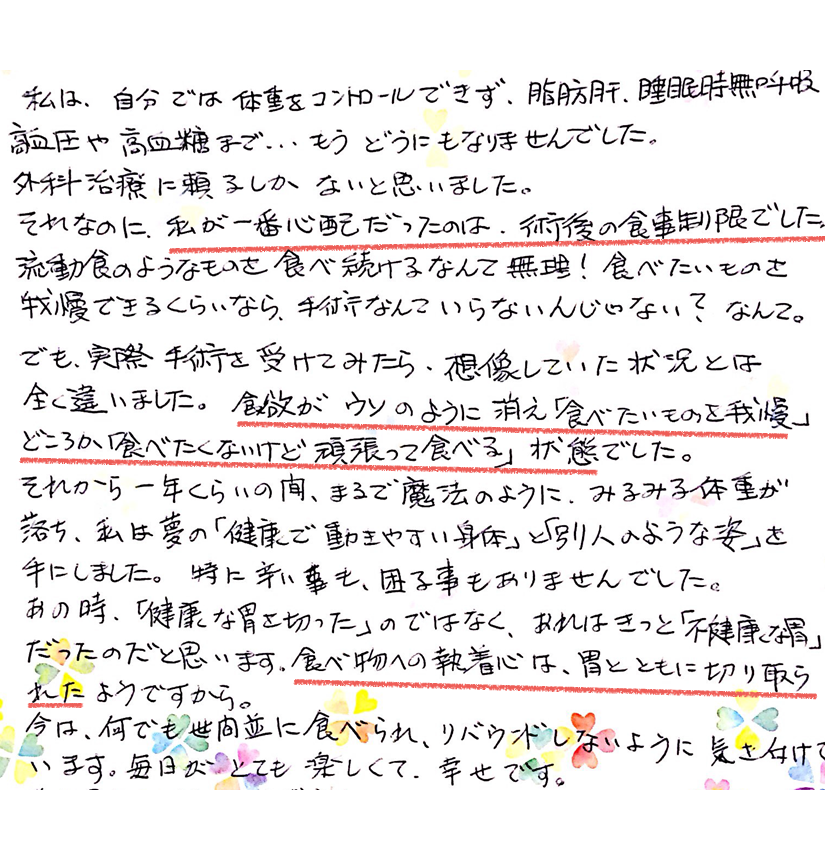 私は、自分では体重をコントロールできず、脂肪肝、睡眠時無呼吸
高血圧や高血糖まで…もうどうにもなりませんでした。
外科治療に頼るしかないと思いました。
それなのに、私が一番心配だったのは、術後の食事制限でした。
流動食のようなものを食べ続けるなんて無理！食べたいものを
我慢できるくらいなら、手術なんていらないんじゃない？なんて。
でも、実際手術を受けてみたら、想像していた状況とは
全く違いました。食欲がウソのように消え「食べたいものを我慢」
どころか「食べたくないけど頑張って食べる」状態でした。
それから一年くらいの間、まるで魔法のように、みるみる体重が
落ち、私は夢の「健康で動きやすい身体」と「別人のような姿」を
手にしました。特に辛い事も、困る事もありませんでした。
あの時、「健康な胃を切った」のではなく、あれはきっと「不健康な胃」
だったのだと思います。食べ物への執着心は、胃とともに切り取ら
れたようですから。
今は、何でも世間並に食べられ、リバウンドしないように気を付けて
います。毎日がとても楽しくて、幸せです。